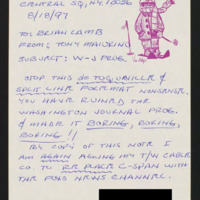 CENTRAL SQ, NY. 13036
8/18/97
TO: BRIAN LAMB
FROM: TONY MAIURINO
SUBJECT: W-J PROG.
STOP THIS DE TOQUEVILLE &
SPLIT LINE FORMAT NONSENSE.
YOU HAVE RUINED THE
WASHINGTON JOURNAL PROG.
& MADE IT BORING, BORING,
BORING !!
BY COPY OF THIS NOTE I
AM AGAIN ASKING MY T/W CABLE
CO. TO REPLACE C-SPAN WITH
THE FOX NEWS CHANNEL.